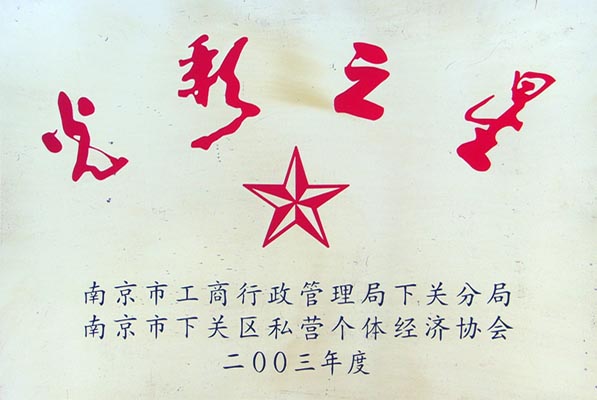 光彩之星
南京市工商行政管理局下关分局
南京市下关区私营个体经济协会
二〇〇三年度